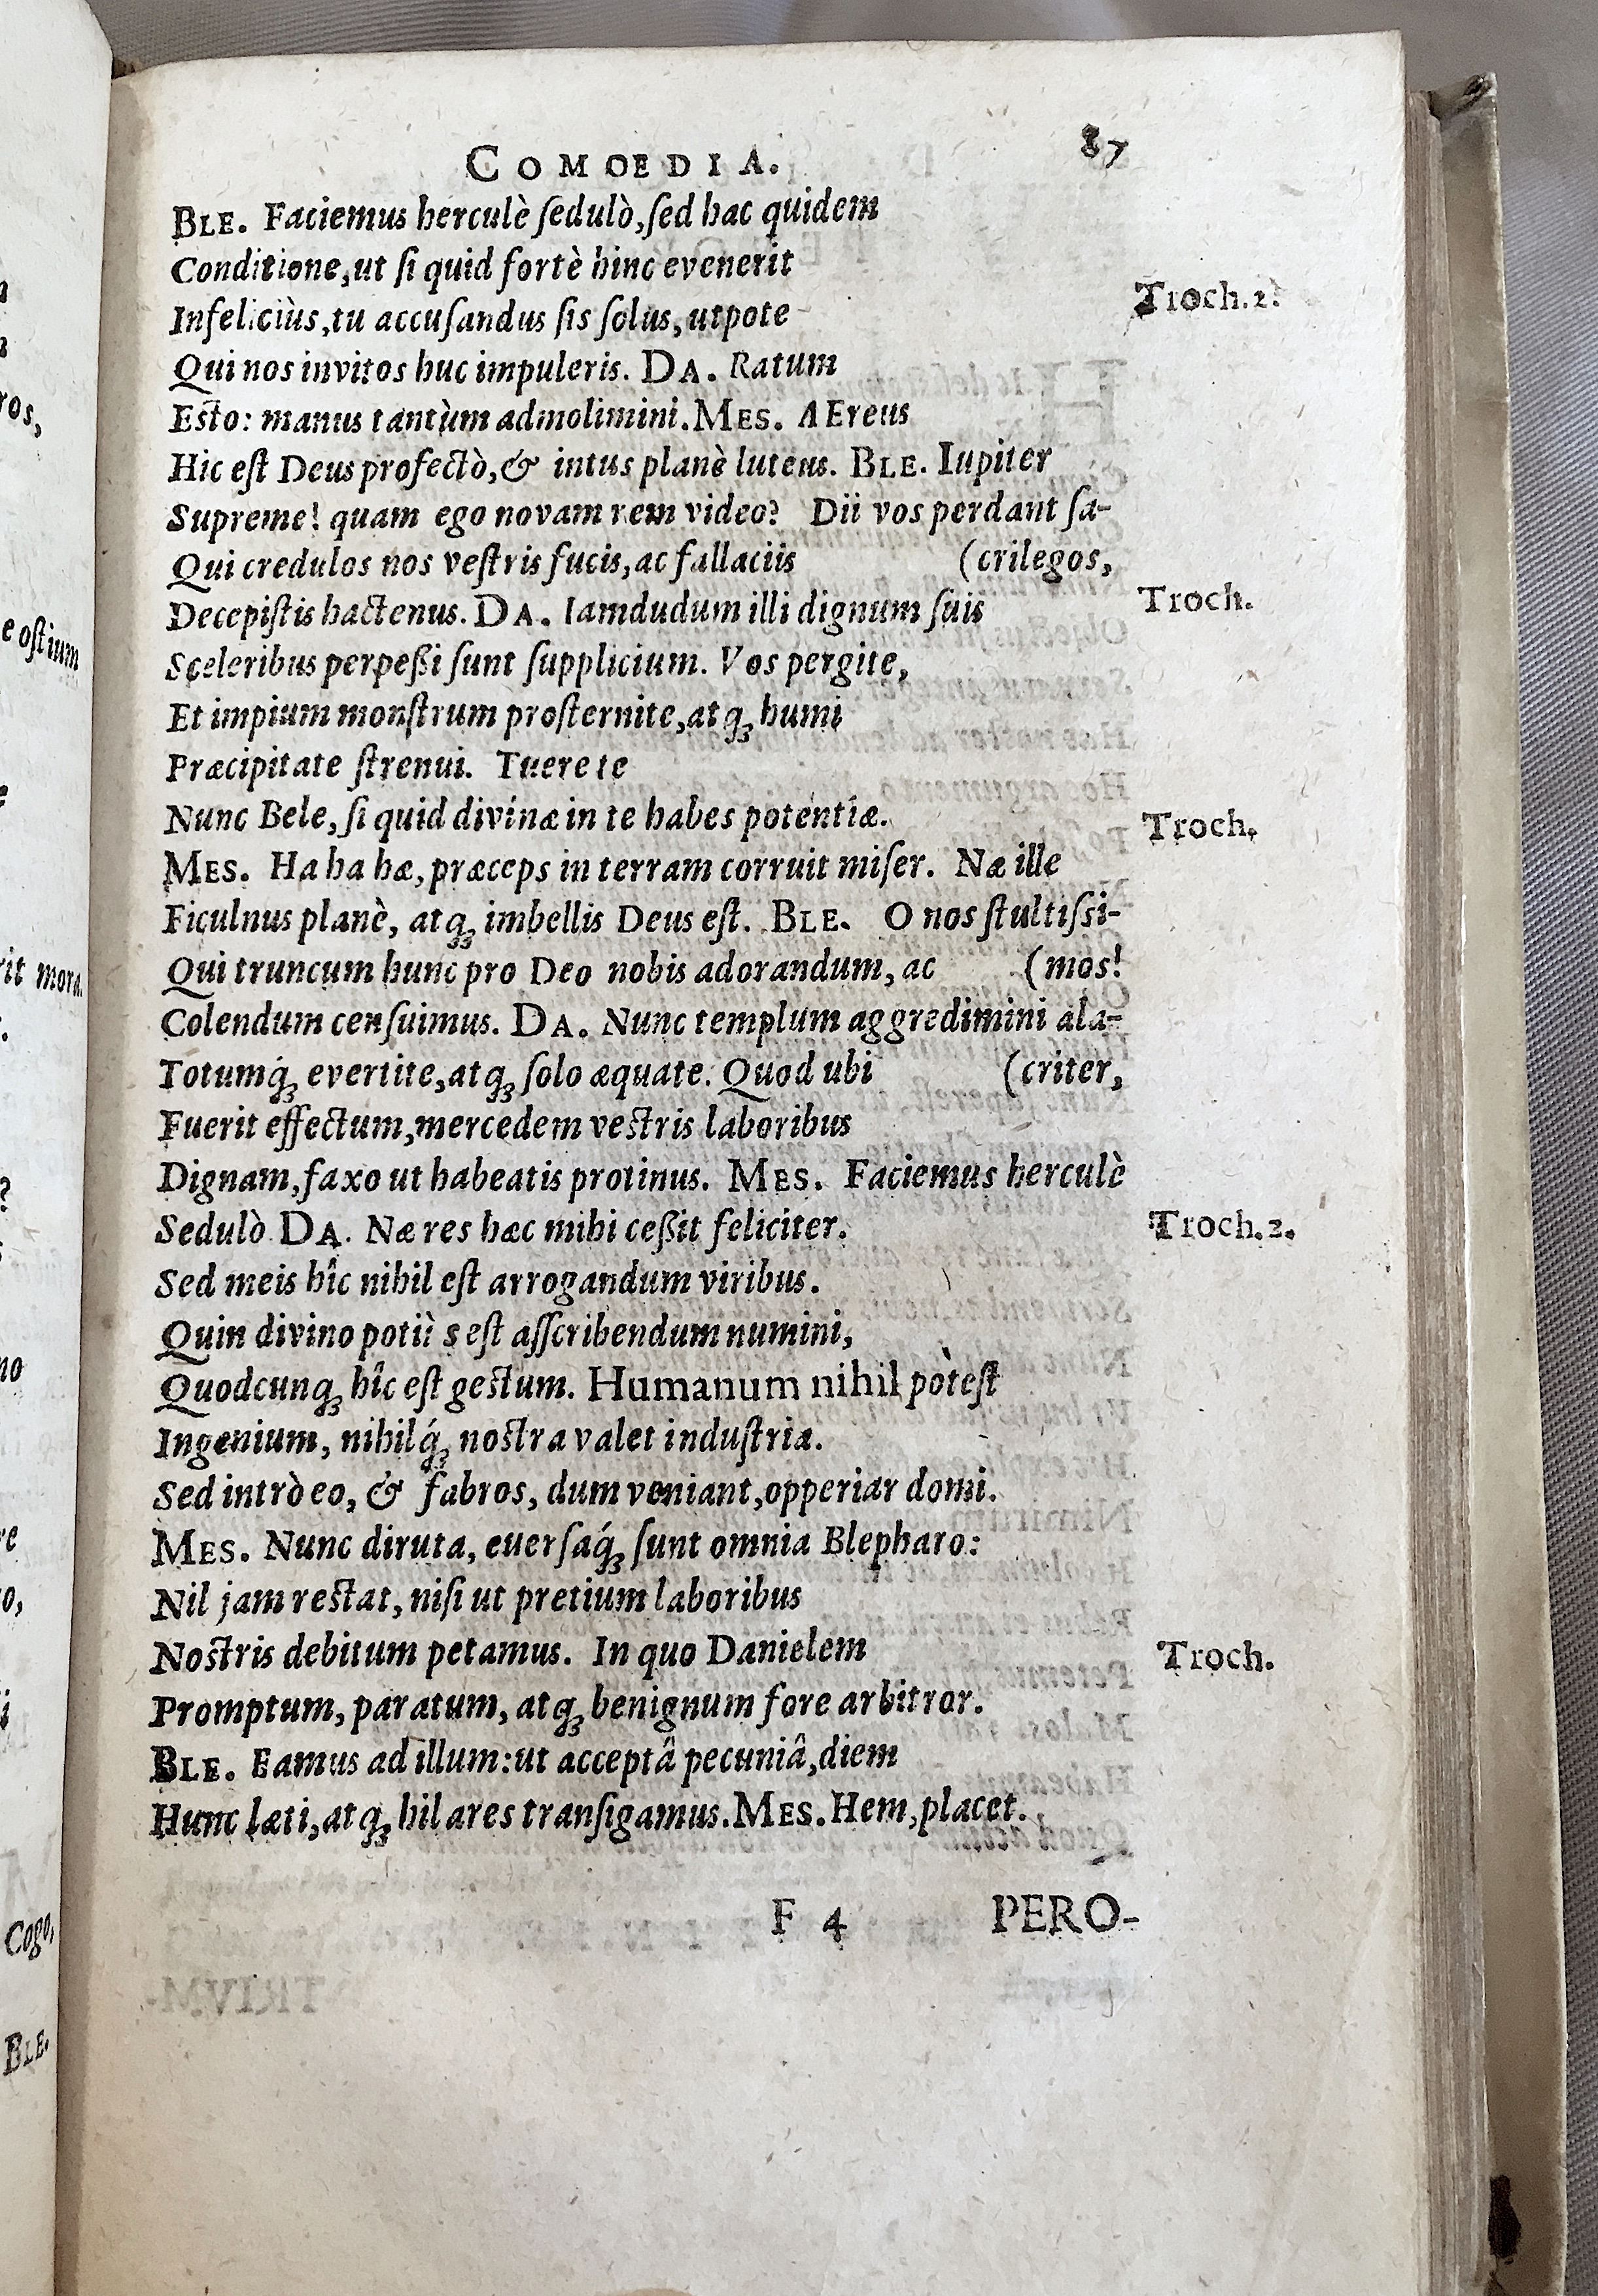 COMOEDIA. 87
BLE. Faciemus herculè ſedulò, ſed hac quidem
Conditione, ut ſi quid fortè hinc evenerit
Infeliciùs, tu accuſandus ſis ſolus, utpote Troch. 2.
Qui nos invitos huc impuleris. DA. Ratum
Eſto: manus tantùm admolimini. MES. AEreus
Hic eſt Deus profectò, & intus planè luteus. BLE. Iupiter
Supreme! quam ego novam rem video? Dii vos perdant ſa-
Qui credulos nos veſtris fucis, ac fallaciis (crilegos,
Decepiſtis hactenus. DA. Iamdudum illi dignum ſuis Troch.
Sceleribus perpeßi ſunt ſupplicium. Vos pergite,
Et impium monſtrum proſternite, atq; humi
Præcipitate ſtrenui. Tuere te
Nunc Bele, ſi quid divinæ in te habes potentiæ. Troch.
MES. Ha ha hæ, præceps in terram corruit miſer. Næ ille
Ficulnus planè, atq; imbellis Deus eſt. BLE. O nos ſtultiſsi-
Qui truncum hunc pro Deo nobis adorandum, ac (mos!
Colendum cenſuimus. DA. Nunc templum aggredimini ala-
Totumq́; evertite, atq; ſolo æquate. Quod ubi (criter,
Fuerit effectum, mercedem veſtris laboribus
Dignam, faxo ut habeatis protinus. MES. Faciemus herculè
Sedulò DA. Næ res hæc mihi ceßit feliciter. Troch. 2.
Sed meis hîc nihil eſt arrogandum viribus.
Quin divino potiùs eſt aſſcribendum numini,
Quodcunq; hîc eſt geſtum. Humanum nihil poteſt
Ingenium, nihilq́; noſtra valet induſtria.
Sed intrò eo, & fabros, dum veniant, opperiar domi.
MES. Nunc diruta, euerſaq́; ſunt omnia Blepharo:
Nil jam reſtat, niſi ut pretium laboribus
Noſtris debitum petamus. In quo Danielem Troch.
Promptum, paratum, atq; benignum fore arbitror.
BLE. Eamus ad illum: ut acceptâ pecuniâ, diem
Hunc læti, atq; hilares tranſigamus. MES. Hem, placet.
F 4 PERO-
ros,
e oſtium
rit mora.
Cogo,
BLE.